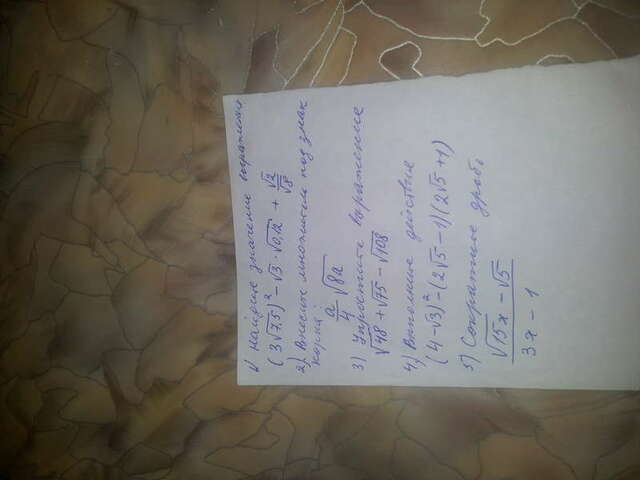 1) Найдите значение выражения
(3√7,5)² - √3 · √0,12 + √2/√8
2) Внесите множитель под знак
корня:
a/4 √8a
3) Упростите выражение
√48 + √75 - √108
4) Выполните действия
(4-√3)² - (2√5-1)(2√5+1)
5) Сократите дробь
√15x - √5
3x - 1